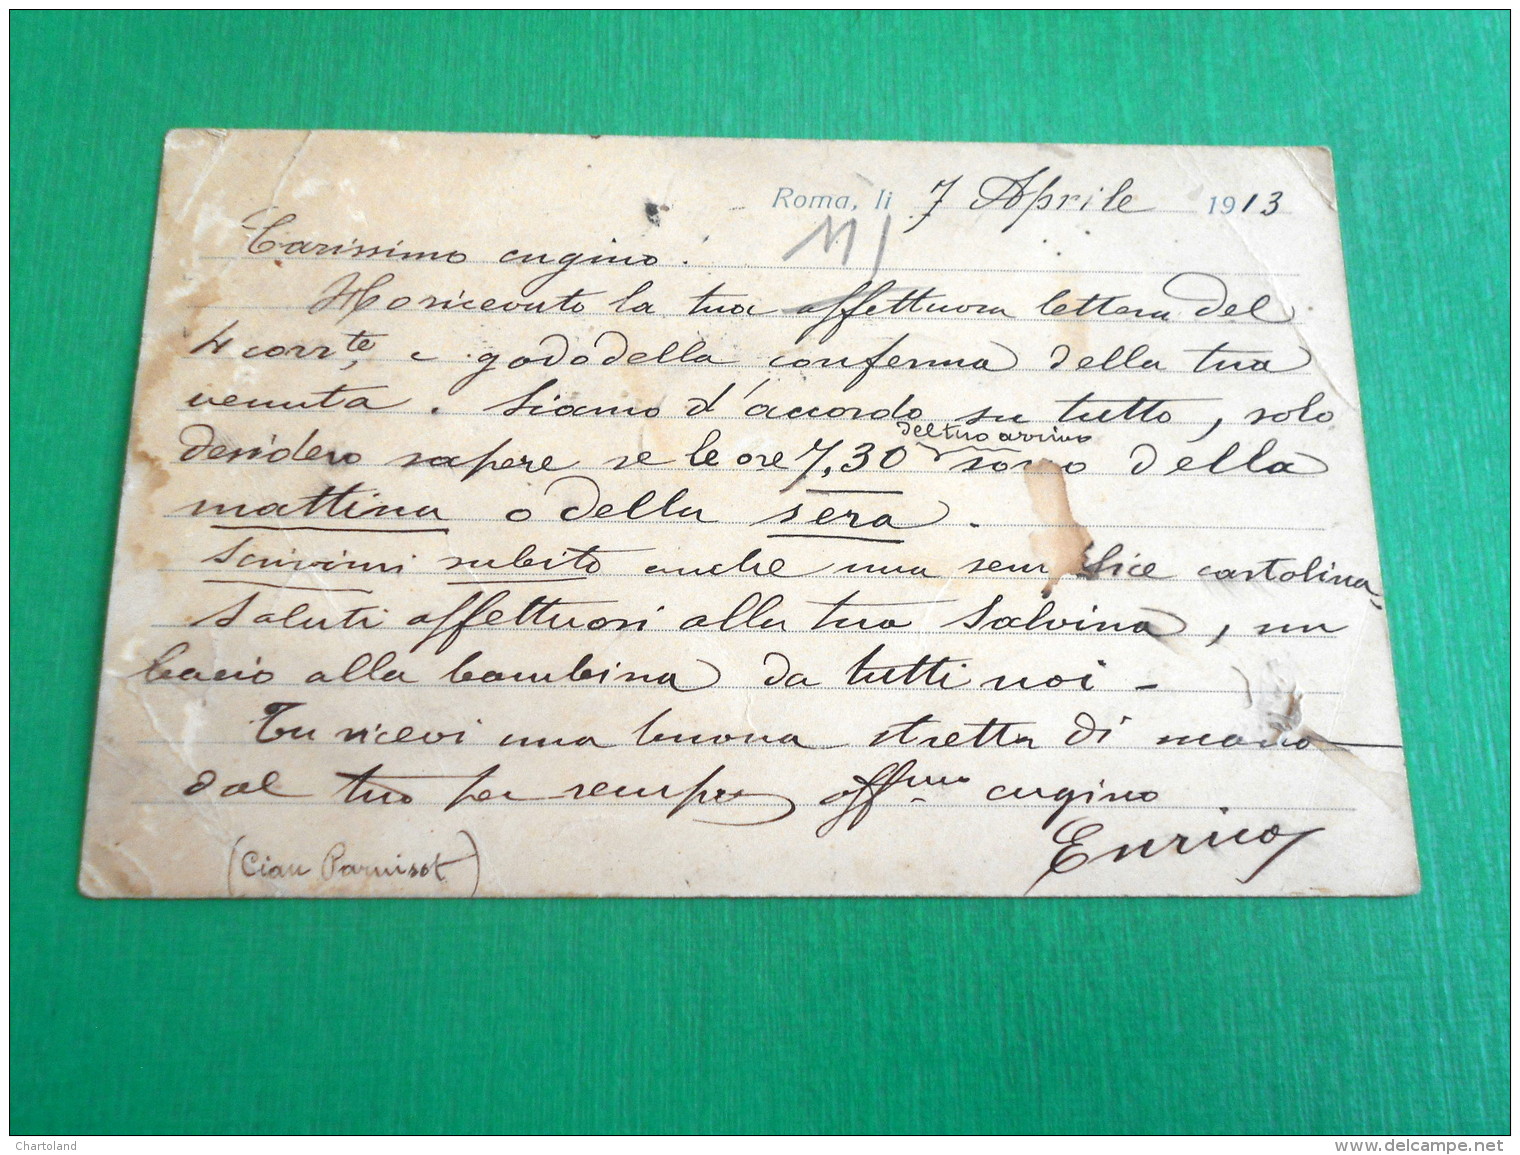 Roma, li 7 Aprile 1913
Carissimo cugino.
Ho ricevuto la tua affettuosa lettera del
4 corr.te, e godo della conferma della tua
venuta. Siamo d'accordo su tutto, solo
del tuo arrivo
desidero sapere se le ore 7,30 sono della
mattina o della sera.
Scrivimi subito anche una semplice cartolina.
Saluti affettuosi alla tua Salvina, un
bacio alla bambina da tutti noi -
Tu ricevi una buona stretta di mano
dal tuo per sempre aff.mo cugino
Enrico
(Ciau Parnisot)
Chartoland
delcampe.net